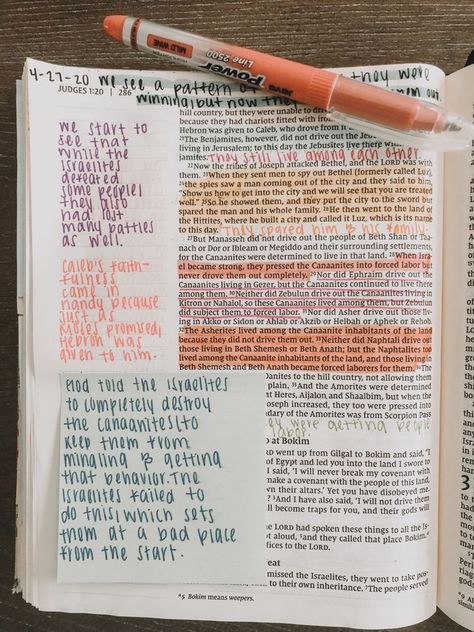 4-27-20 we see a pattern of they were
JUDGES 1:20 | 286
winning but now they out.
MILD WINE
Power
Line 2500
JAVA
we start to
see that
while the
Israelites
defeated
some people,
they also
had lost
many battles
as well.
Caleb's faith-
fulness
came in
handy because
just as
Moses promised,
Hebron was
given to him.
God told the Israelites
to completely destroy
the Canaanites to
keep them from
mingling & getting
that behavior. The
Israelites failed to
do this, which sets
them at a bad place
from the start.
hill country, but they were unable to drive
because they had chariots fitted with iron
Hebron was given to Caleb, who drove from it
The Benjamites, however, did not drive out the Jebusites
living in Jerusalem; to this day the Jebusites live there with
jamites. They still live among each other
22 Now the tribes of Joseph attacked Bethel, and the LORD was with
them. 23 When they sent men to spy out Bethel (formerly called Luz),
24 the spies saw a man coming out of the city and they said to him,
"Show us how to get into the city and we will see that you are treated
well." 25 So he showed them, and they put the city to the sword but
spared the man and his whole family. 26 He then went to the land of
the Hittites, where he built a city and called it Luz, which is its name
to this day. They spared him & his family.
27 But Manasseh did not drive out the people of Beth Shan or Taa-
nach or Dor or Ibleam or Megiddo and their surrounding settlements,
for the Canaanites were determined to live in that land. 28 When Isra-
el became strong, they pressed the Canaanites into forced labor but
never drove them out completely. 29 Nor did Ephraim drive out the
Canaanites living in Gezer, but the Canaanites continued to live there
among them. 30 Neither did Zebulun drive out the Canaanites living in
Kitron or Nahalol, so these Canaanites lived among them, but Zebulun
did subject them to forced labor. 31 Nor did Asher drive out those liv-
ing in Akko or Sidon or Ahlab or Akzib or Helbah or Aphek or Rehob.
32 The Asherites lived among the Canaanite inhabitants of the land
because they did not drive them out. 33 Neither did Naphtali drive out
those living in Beth Shemesh or Beth Anath; but the Naphtalites too
lived among the Canaanite inhabitants of the land, and those living in
Beth Shemesh and Beth Anath became forced laborers for them. 34 The
to the hill country, not allowing them
plain, 35 And the Amorites were determined
t Heres, Aijalon and Shaalbim, but when the
oseph increased, they too were pressed into
ndary of the Amorites was from Scorpion Pass
they were getting people
labor.
at Bokim
D went up from Gilgal to Bokim and said, "I
of Egypt and led you into the land I swore to
I said, 'I will never break my covenant with
make a covenant with the people of this land,
wn their altars.' Yet you have disobeyed me.
? 3 And I have also said, 'I will not drive them
ll become traps for you, and their gods will
LORD had spoken these things to all the Is-
ot aloud, 5 and they called that place Bokim.
fices to the LORD.
eat
missed the Israelites, they went to take pos-
to their own inheritance. 7 The people served
*5 Bokim means weepers.
3